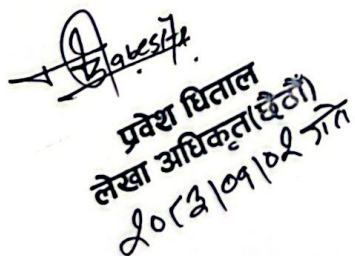 प्रवेश धिताल
लेखा अधिकृत(छैठौं)
२०८३।०१।०२ गते